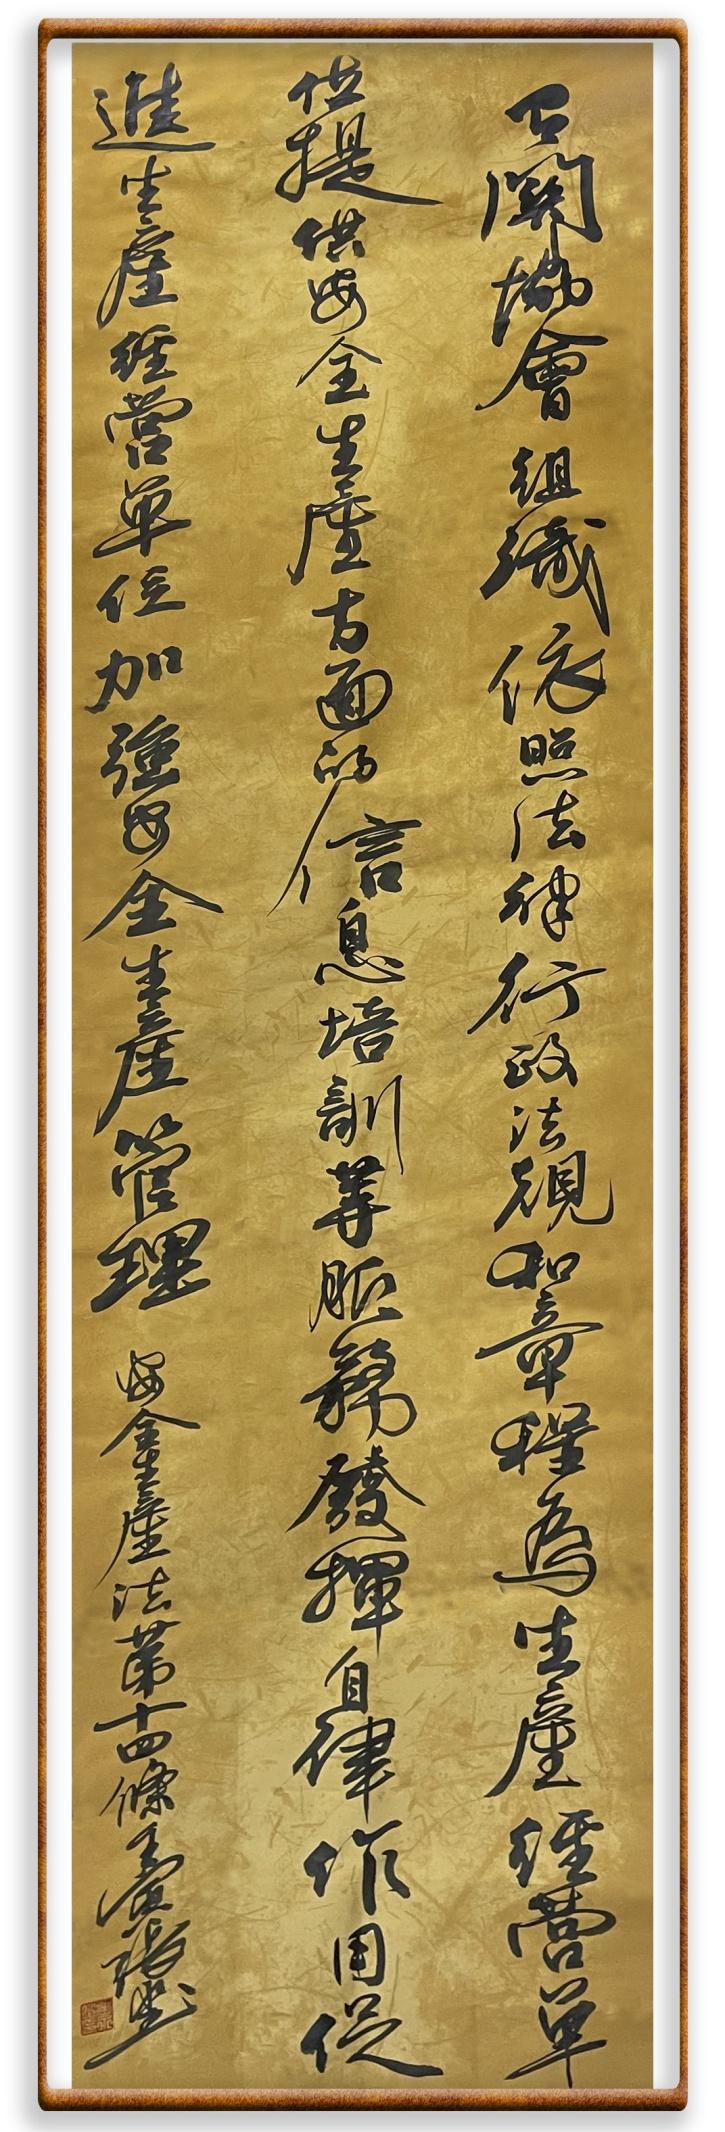 有關協會組織依照法律行政法規和章程為生產經营单
位提供安全生產方面的信息培訓等服務發揮自律作用促
進生產經营单位加強安全生產管理 安全生產法第十四條